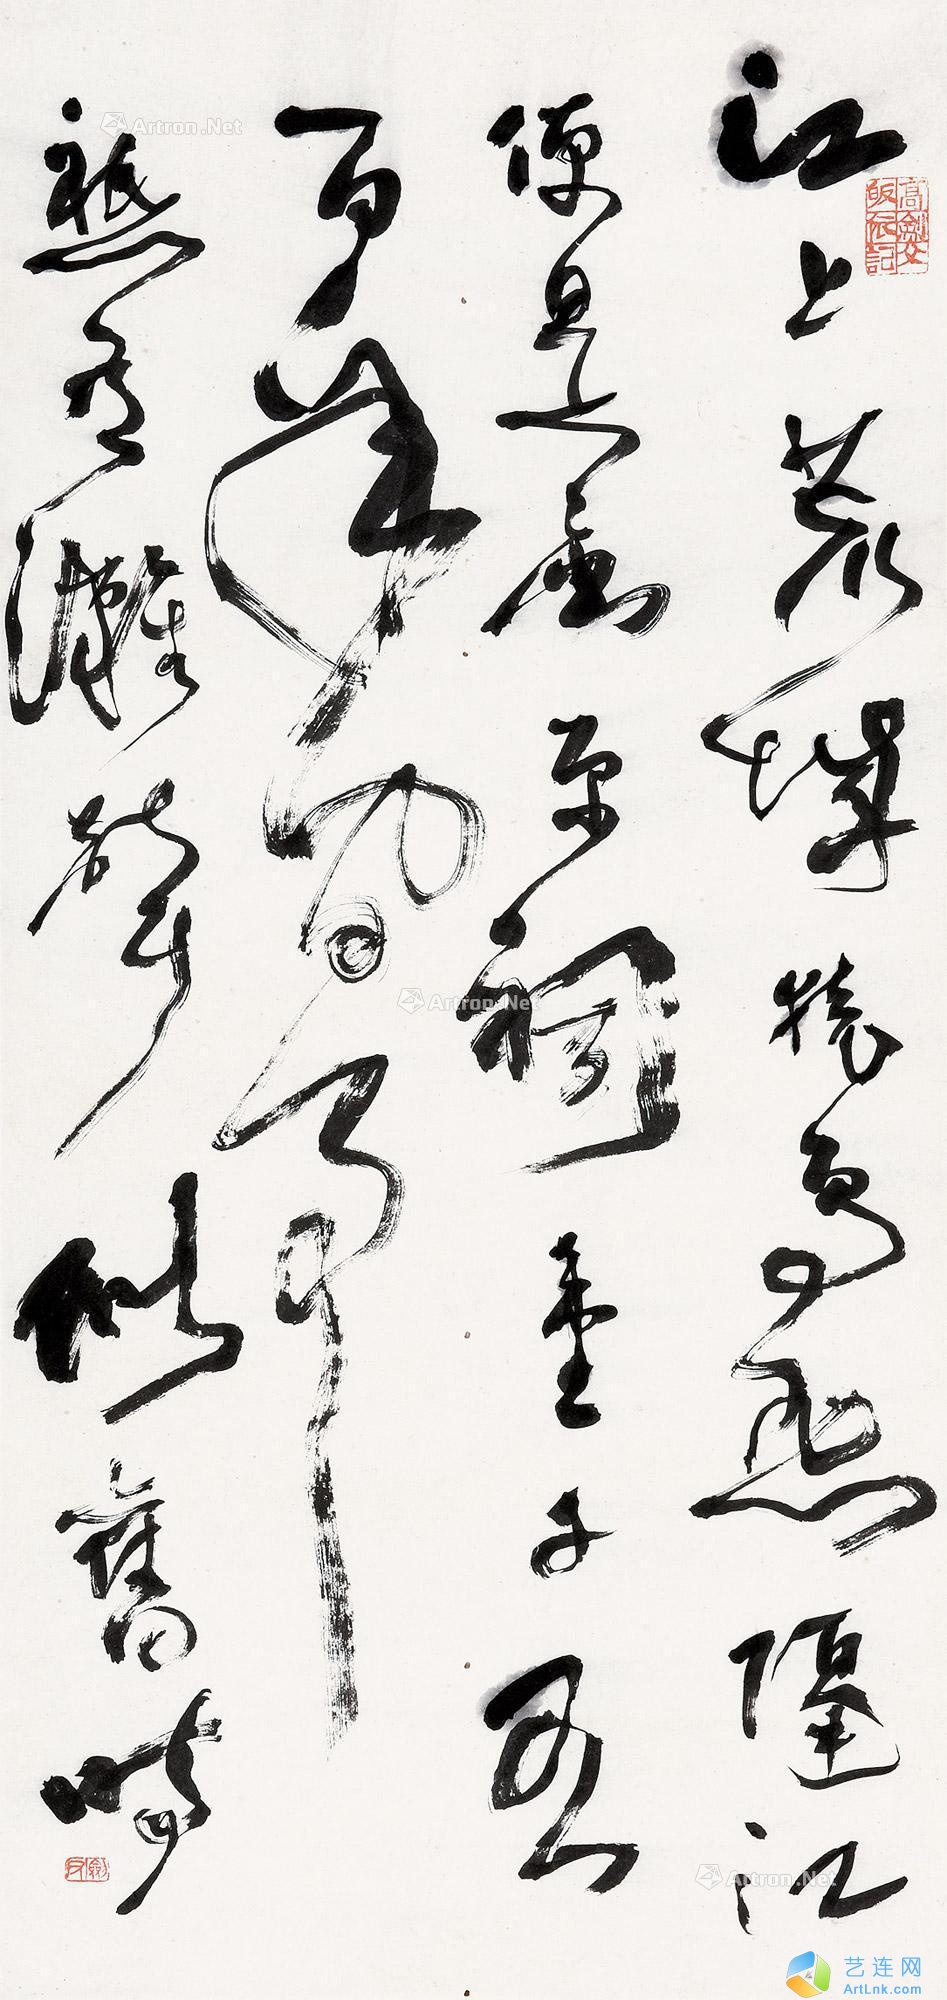 江上荒城猿鳥悲隔江
便是屈原祠壹千五
百年間事
祇有灘聲似舊時
高劍父
劍父
Artron.Net
Artron.Net
Artron.Net
艺连网
ArtLnk.com